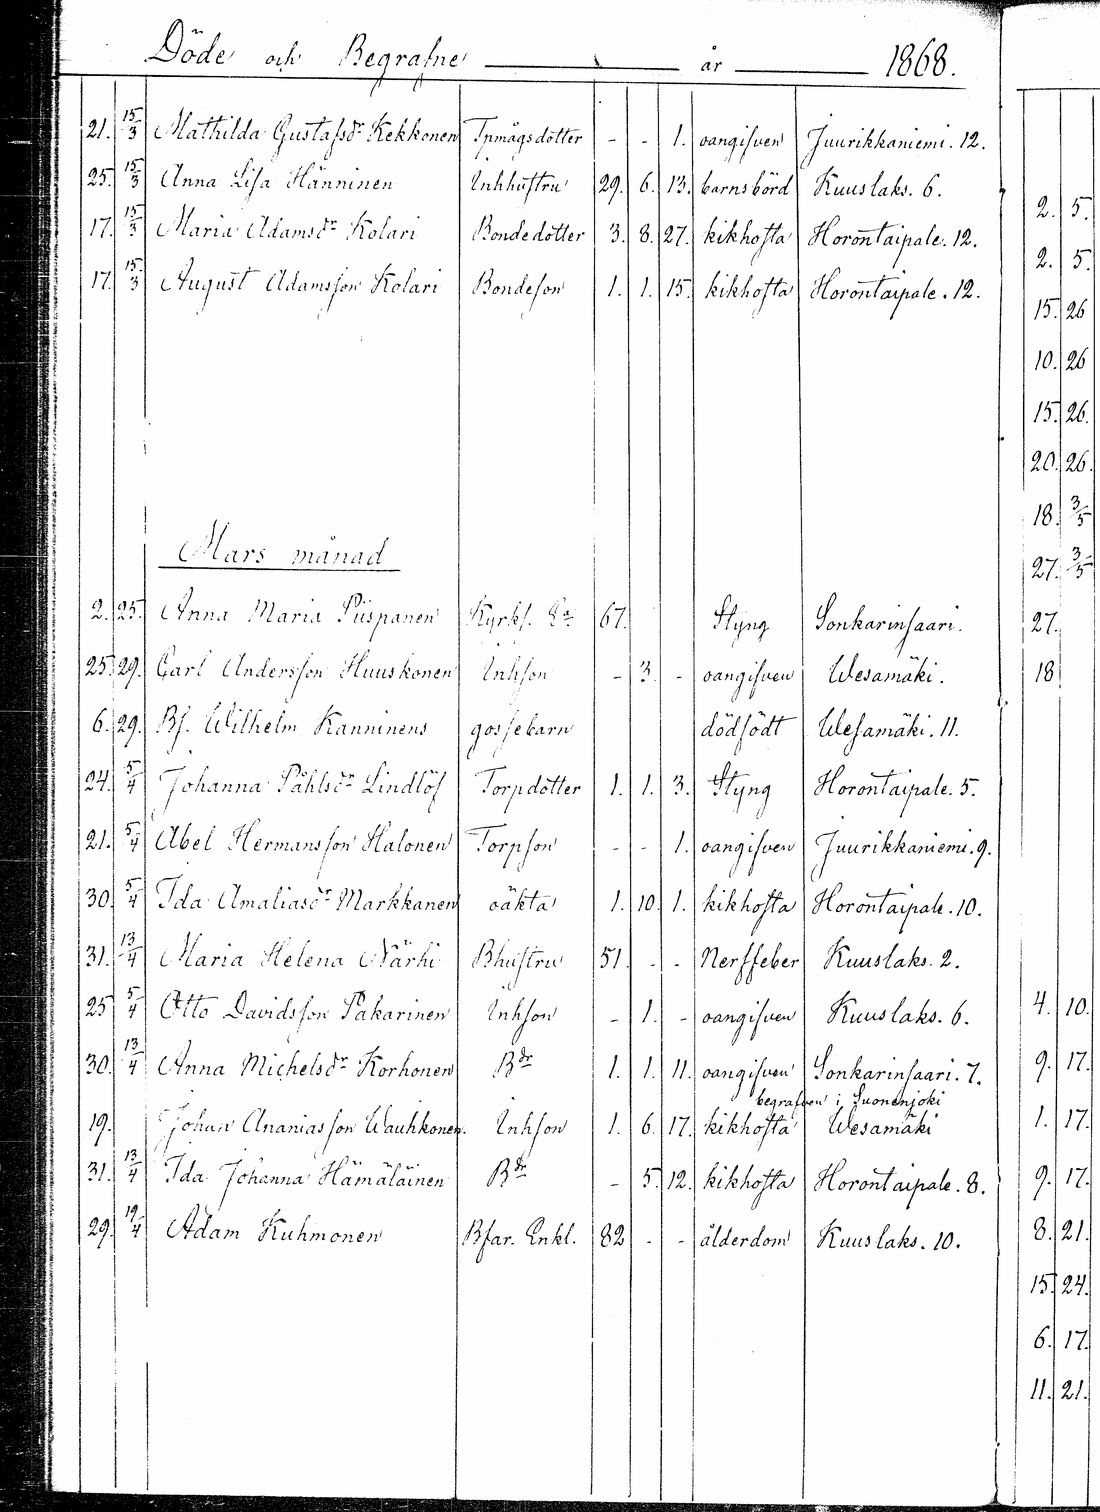 Döde och Begrafne år 1868.
21. 15/3 Mathilda Gustafsdr Kekkonen Tpmågsdotter - - 1. oangifven Juurikkaniemi. 12.
25. 15/3 Anna Lisa Hänninen Inhhustru 29. 6. 13. barnsbörd Kuuslaks. 6.
17. 15/3 Maria Adamsdr Kolari Bondedotter 3. 8. 27. kikhosta Horontaipale. 12.
17. 15/3 August Adamsson Kolari Bondeson 1. 1. 15. kikhosta Horontaipale. 12.
Mars månad
2. 25. Anna Maria Piispanen Kyrks. 67. Styng Sonkarinsaari.
25 29. Carl Andersson Huuskonen Inhson - 3. - oangifven Wesamäki.
6. 29. Bf. Wilhelm Kanninens gossebarn dödfödt Wesamäki. 11.
24. 5/4 Johanna Påhlsdr Lindlöf Torpdotter 1. 1. 3. Styng Horontaipale. 5.
21. 5/4 Abel Hermansson Halonen Torpson - - 1. oangifven Juurikkaniemi. 9.
30. 5/4 Ida Amaliasdr Markkanen oäkta 1. 10. 1. kikhosta Horontaipale. 10.
31. 13/4 Maria Helena Närhi Bhustru 51. - - Nerffeber Kuuslaks. 2.
25 5/4 Otto Davidsson Pakarinen Inhson - 1. - oangifven Kuuslaks. 6.
30. 13/4 Anna Michelsdr Korhonen Bdr 1. 1. 11. oangifven Sonkarinsaari. 7.
begrafven i Suonenjoki
19. Johan Ananiasson Wauhkonen. Inhson 1. 6. 17. kikhosta Wesamäki
31. 13/4 Ida Johanna Hämäläinen Bdr - 5. 12. kikhosta Horontaipale. 8.
29. 19/4 Adam Kuhmonen Bfar. Enkl. 82 - - ålderdom Kuuslaks. 10.
2. 5.
2. 5.
15. 26
10. 26
15. 26.
20. 26.
18. 3/5
27. 3/5
27.
18
4. 10.
9. 17.
1. 17.
9. 17.
8. 21.
15. 24.
6. 17.
11. 21.